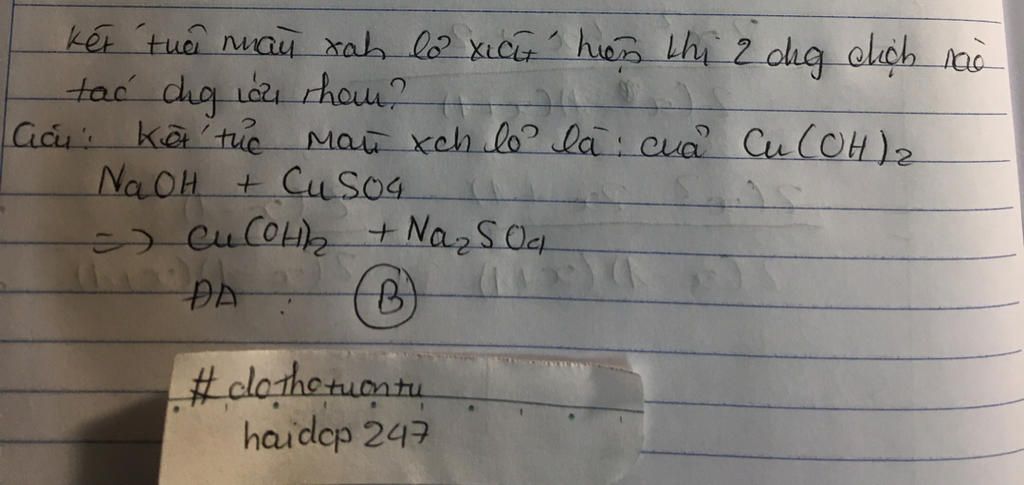 kết tủa màu xah lơ xuất hiện khi 2 dng dịch nào
tác dng với nhau?
Giải: Kết tủa màu xah lơ là: của Cu(OH)2
NaOH + CuSO4
=> Cu(OH)2 + Na2SO4
ĐA : B
#dothetuantu
haidcp 247